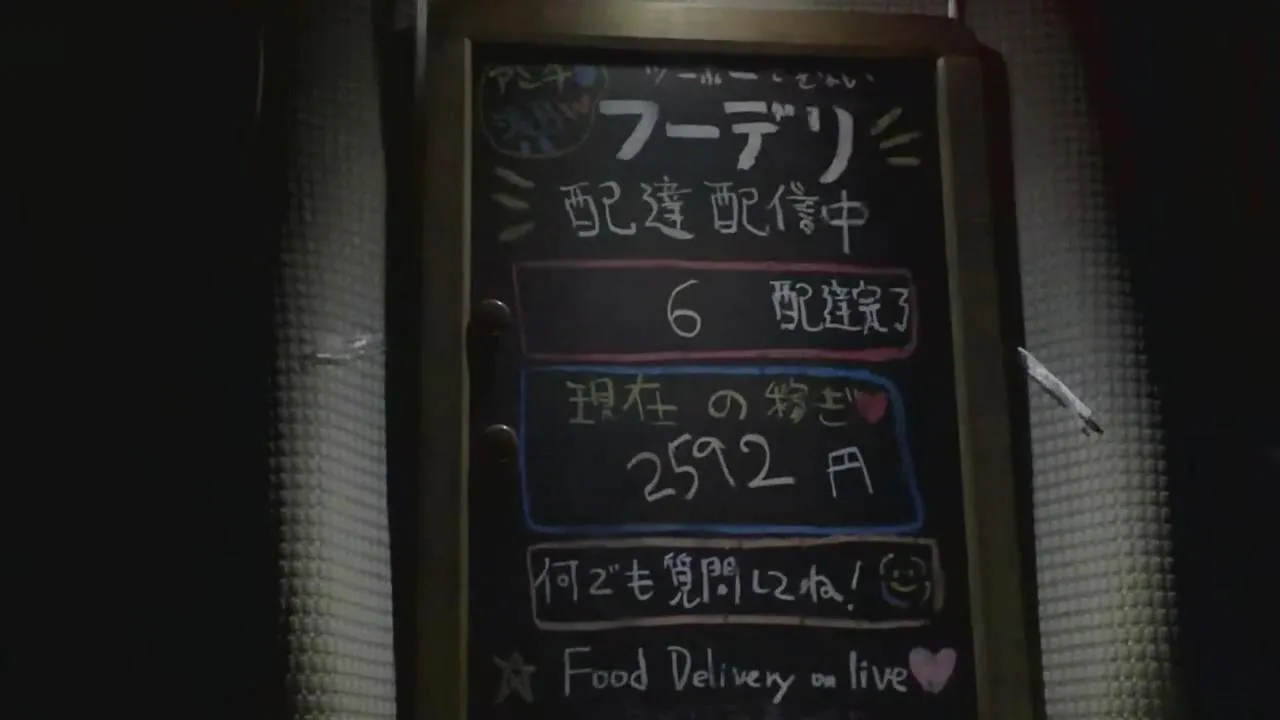 フーデリ
配達配信中
6 配達完了
現在の稼ぎ
2592円
何でも質問してね!
Food Delivery on live